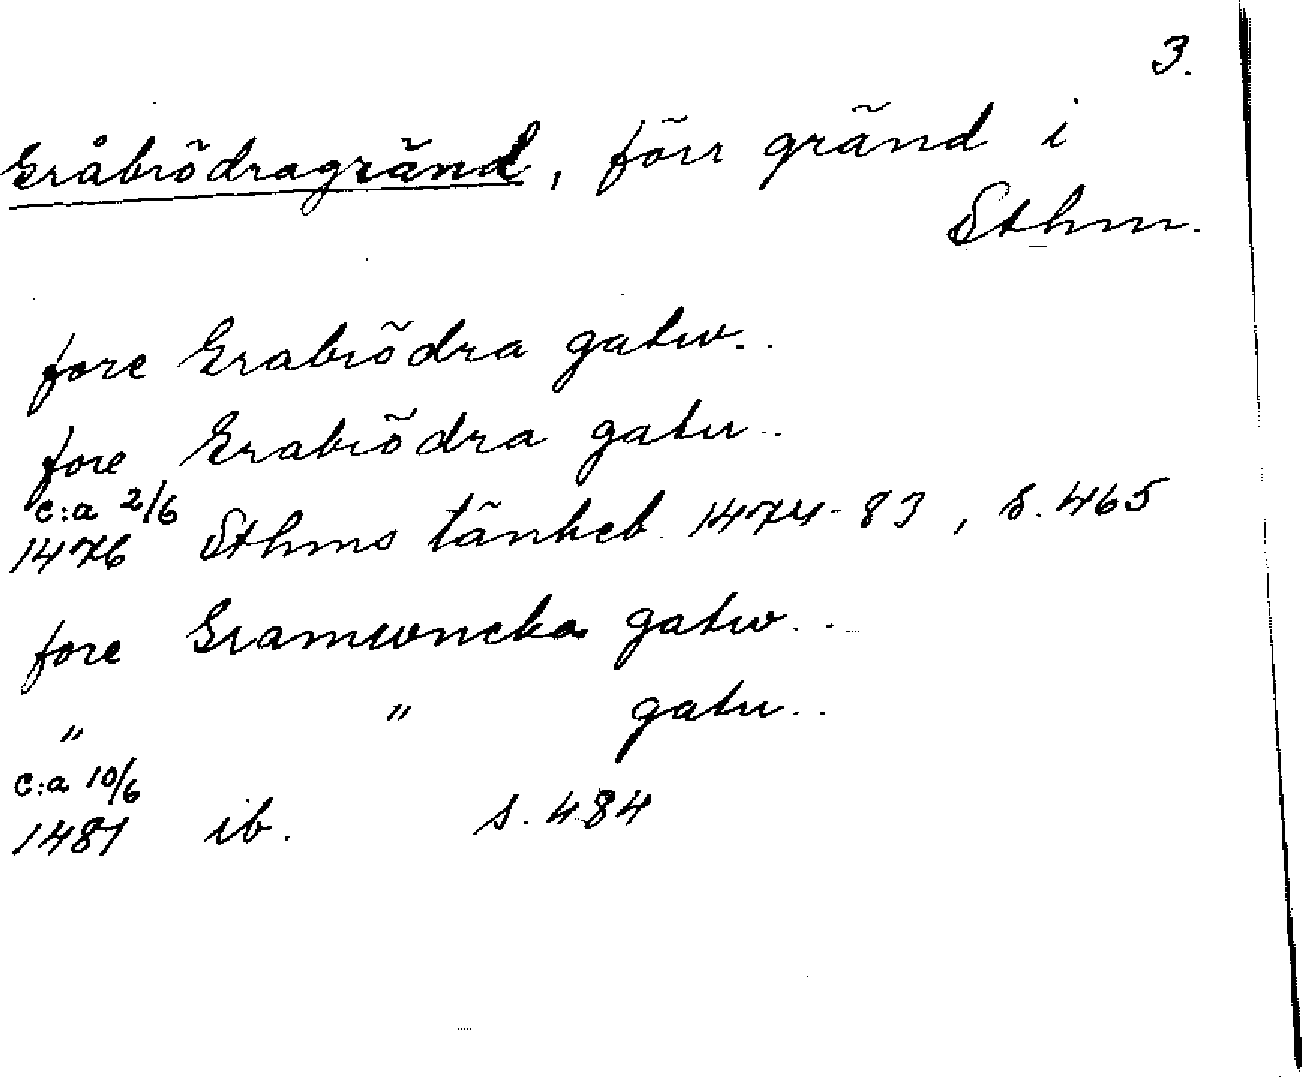 3.
Gråbrödragränd, förr gränd i
Sthm.
fore Grabrödra gatw..
fore Grabrödra gatu..
c:a 2/6
1476 Sthms tänkeb. 1474-83, s. 465
fore Gramwncka gatw...
" " gatu..
c:a 10/6
1481 ib. s. 484